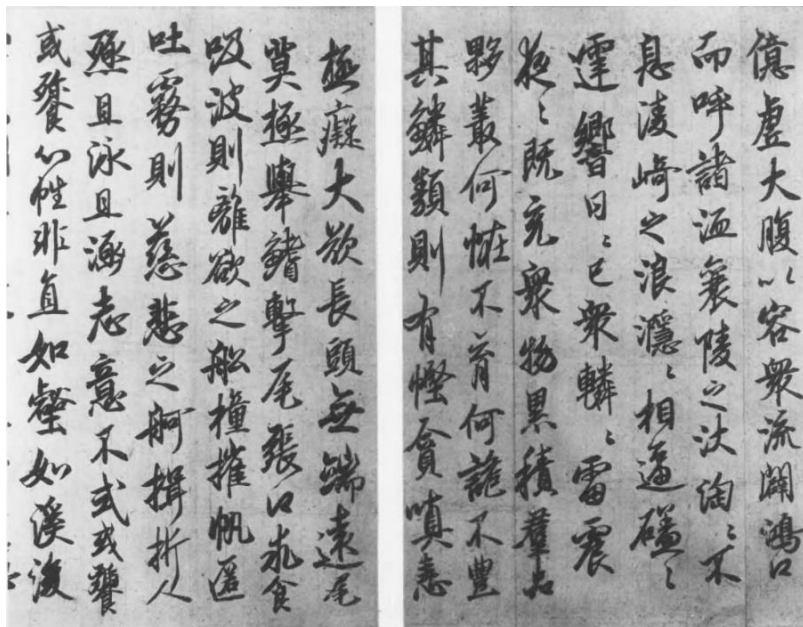 億虚大腹以容衆流闢鴻口
而呼諸洫襄陵之汏淘々不
息凌崎之浪濦々相逼磕々
霆響日々已衆轔々雷震
夜々既充衆物累積羣品
夥叢何恠不育何詭不豊
其鱗類則有慳貪嗔恚
極癡大欲長頭無端遠尾
莫極舉鰭擊尾張口求食
吸波則離欲之舩橦摧帆匿
吐霧則慈悲之舸楫折人
殪且泳且涵志意不式或饕
或餮心性非直如壑如溪後